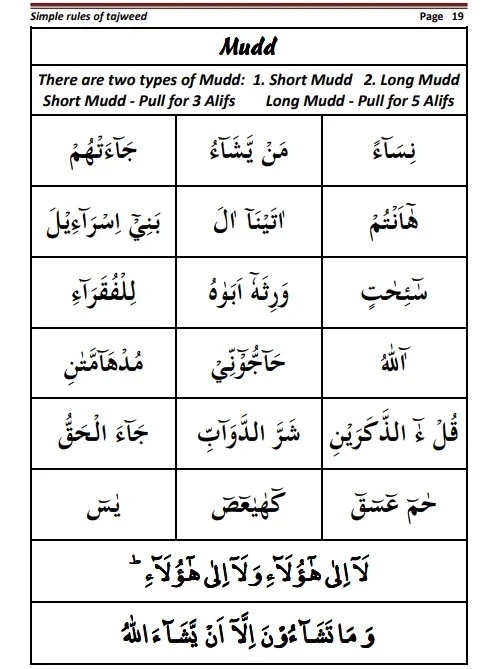 Simple rules of tajweed Page 19
Mudd
There are two types of Mudd: 1. Short Mudd 2. Long Mudd
Short Mudd - Pull for 3 Alifs Long Mudd - Pull for 5 Alifs
نِسَآءً مَنْ يَّشَآءُ جَآءَتْهُمْ
هٰٓاَنْتُمْ اٰتَيْنَآ اٰلَ بَنِيْٓ اِسْرَآءِيْلَ
سٰٓئِحٰتٍ وَرِثَهٗٓ اَبَوٰهُ لِلْفُقَرَآءِ
آٰللّٰهُ حَآجُّوْٓنِّيْ مُدْهَآمَّتٰنِ
قُلْ ءٰٓ الذَّكَرَيْنِ شَرَّ الدَّوَآبِّ جَآءَ الْحَقُّ
حٰمٓ عٓسٓقٓ كٓهٰيٰعٓصٓ يٰسٓ
لَآ اِلٰى هٰٓؤُلَآءِ وَلَآ اِلٰى هٰٓؤُلَآءِ ؕ
وَ مَا تَشَآءُوْنَ اِلَّآ اَنْ يَّشَآءَ اللّٰهُ